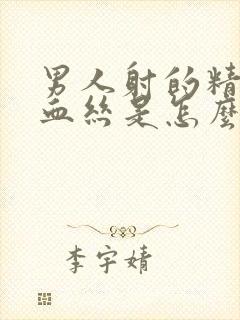 男人射的精
血丝是怎麼
李宇婧